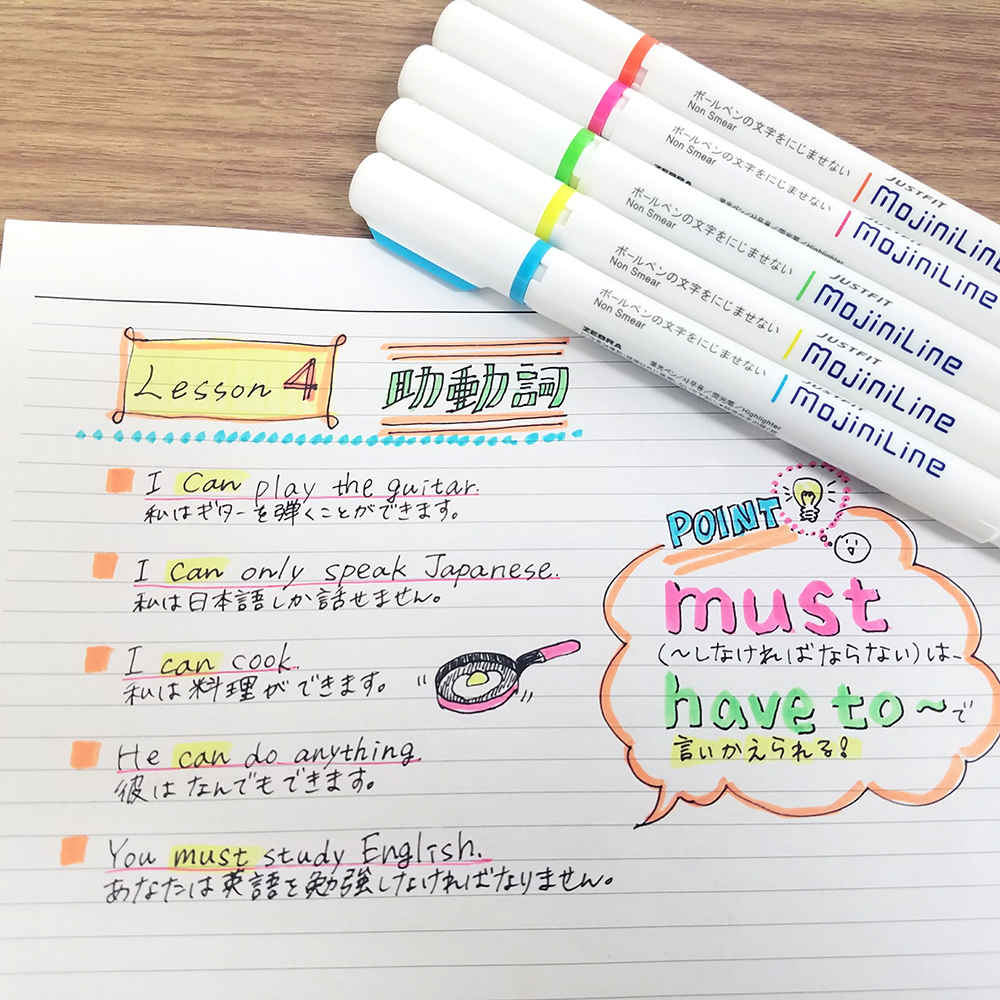 ボールペンの文字をにじませない
Non Smear
JUSTFIT
mojiniLine
ボールペンの文字をにじませない
Non Smear
ZEBRA
JUSTFIT
mojiniLine
ボールペンの文字をにじませない
Non Smear
Highlighter
JUSTFIT
mojiniLine
ボールペンの文字をにじませない
Non Smear
JUSTFIT
mojiniLine
ボールペンの文字をにじませない
Non Smear
ZEBRA
Highlighter
JUSTFIT
mojiniLine
Lesson 4 助動詞
I can play the guitar.
私はギターを弾くことができます。
I can only speak Japanese.
私は日本語しか話せません。
I can cook.
私は料理ができます。
He can do anything.
彼はなんでもできます。
You must study English.
あなたは英語を勉強しなければなりません。
POINT
must
(〜しなければならない)は、
have to 〜で
言いかえられる!